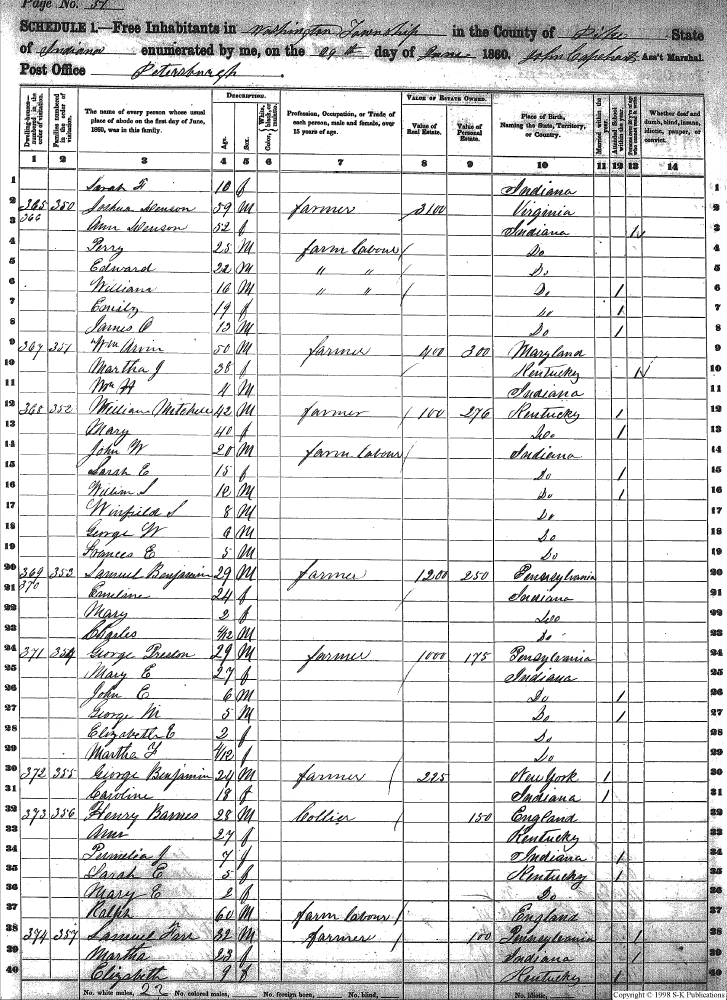 Page No. 51
SCHEDULE 1.—Free Inhabitants in Washington Township in the County of Pike State
of Indiana enumerated by me, on the 29th day of June 1860. John Capehart Ass't Marshal.
Post Office Petersburgh.
Dwelling-houses—numbered in the order of visitation. Families numbered in the order of visitation. The name of every person whose usual place of abode on the first day of June, 1860, was in this family. DESCRIPTION. Age. Sex. Color, White, black, or mulatto. Profession, Occupation, or Trade of each person, male and female, over 15 years of age. VALUE OF ESTATE OWNED. Value of Real Estate. Value of Personal Estate. Place of Birth, Naming the State, Territory, or Country. Married within the year. Attended School within the year. Whether deaf and dumb, blind, insane, idiotic, pauper, or convict.
1 2 3 4 5 6 7 8 9 10 11 12 13 14
1 Sarah F 10 f Indiana 1
2 365 350 Joshua 59 M farmer 3100 Virginia 2
3 366 Ann 52 f Indiana 1 3
4 Perry 25 M farm labour Do 4
5 Edward 22 M " " Do 5
6 William 16 M " " Do 1 6
7 Emily 19 f Do 1 7
8 James O 13 M Do 1 8
9 367 351 Wm Arvin 50 M farmer 400 300 Maryland 9
10 Martha J 38 f Kentucky 1 10
11 Wm H 4 M Indiana 11
12 368 352 William Mitchell 42 M farmer 100 276 Kentucky 1 12
13 Mary 40 f Do 1 13
14 John W 20 M farm labour Indiana 14
15 Sarah E 15 f Do 1 15
16 Willim S 12 M Do 1 16
17 Winfield S 8 M Do 17
18 George W 6 M Do 18
19 Frances E 5 M Do 19
20 369 353 Samuel Benjamin 29 M farmer 1200 250 Pennsylvania 20
21 370 Emeline 24 f Indiana 21
22 Mary 2 f Do 22
23 Charles /12 M Do 23
24 371 354 George Preston 29 M farmer 1000 175 Pensylvania 24
25 Mary E 27 f Indiana 25
26 John E 6 M Do 1 26
27 George M 5 M Do 1 27
28 Elizabeth E 2 f Do 28
29 Martha F 4/12 f Do 29
30 372 355 George Benjamin 24 M farmer 225 New York 1 30
31 Caroline 18 f Indiana 1 31
32 373 356 Henry Barnes 28 M Collier 150 England 32
33 Ann 27 f Kentucky 33
34 Permelia J 7 f Indiana 1 34
35 Sarah E 5 f Kentucky 1 35
36 Mary E 2 f Do 36
37 Ralph 60 M farm labour England 37
38 374 357 Samuel 32 M farmer 100 Pennsylvania 1 38
39 Martha 23 f Indiana 1 39
40 Elizabeth 9 f Kentucky 1 40
No. white males, 22 No. colored males, No. foreign born, No. blind, No. idiotic,
Copyright © 1998 S-K Publications